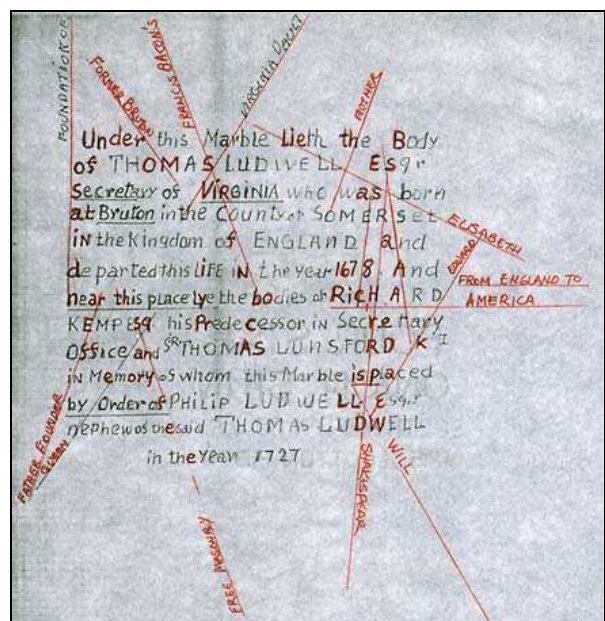 FOUNDATION OF
FORMER BRUTON
FRANCIS BACON'S
VIRGINIA COUNT
MOTHER
Under this Marble Lieth the Body
of THOMAS LUDWELL Esqr
Secretary of VIRGINIA who was born
at Bruton in the County of SOMERSet
in the Kingdom of ENGLAND and
departed this LIFE IN the year 1678. And
near this place Lye the bodies of RicHARD
KEMP ESQ his Predecessor in Secretary
Office and SR THOMAS LUNSFORD KT
in Memory of whom this Marble is placed
by Order of PHILIP LUDWELL Esqr
nephew of the said THOMAS LUDWELL
in the year 1727
ELISABETH
EDWARD
FROM ENGLAND TO
AMERICA
FATHER FOUNDER
QUEEN
FREE MASONRY
SHAKSPEAR
WILL